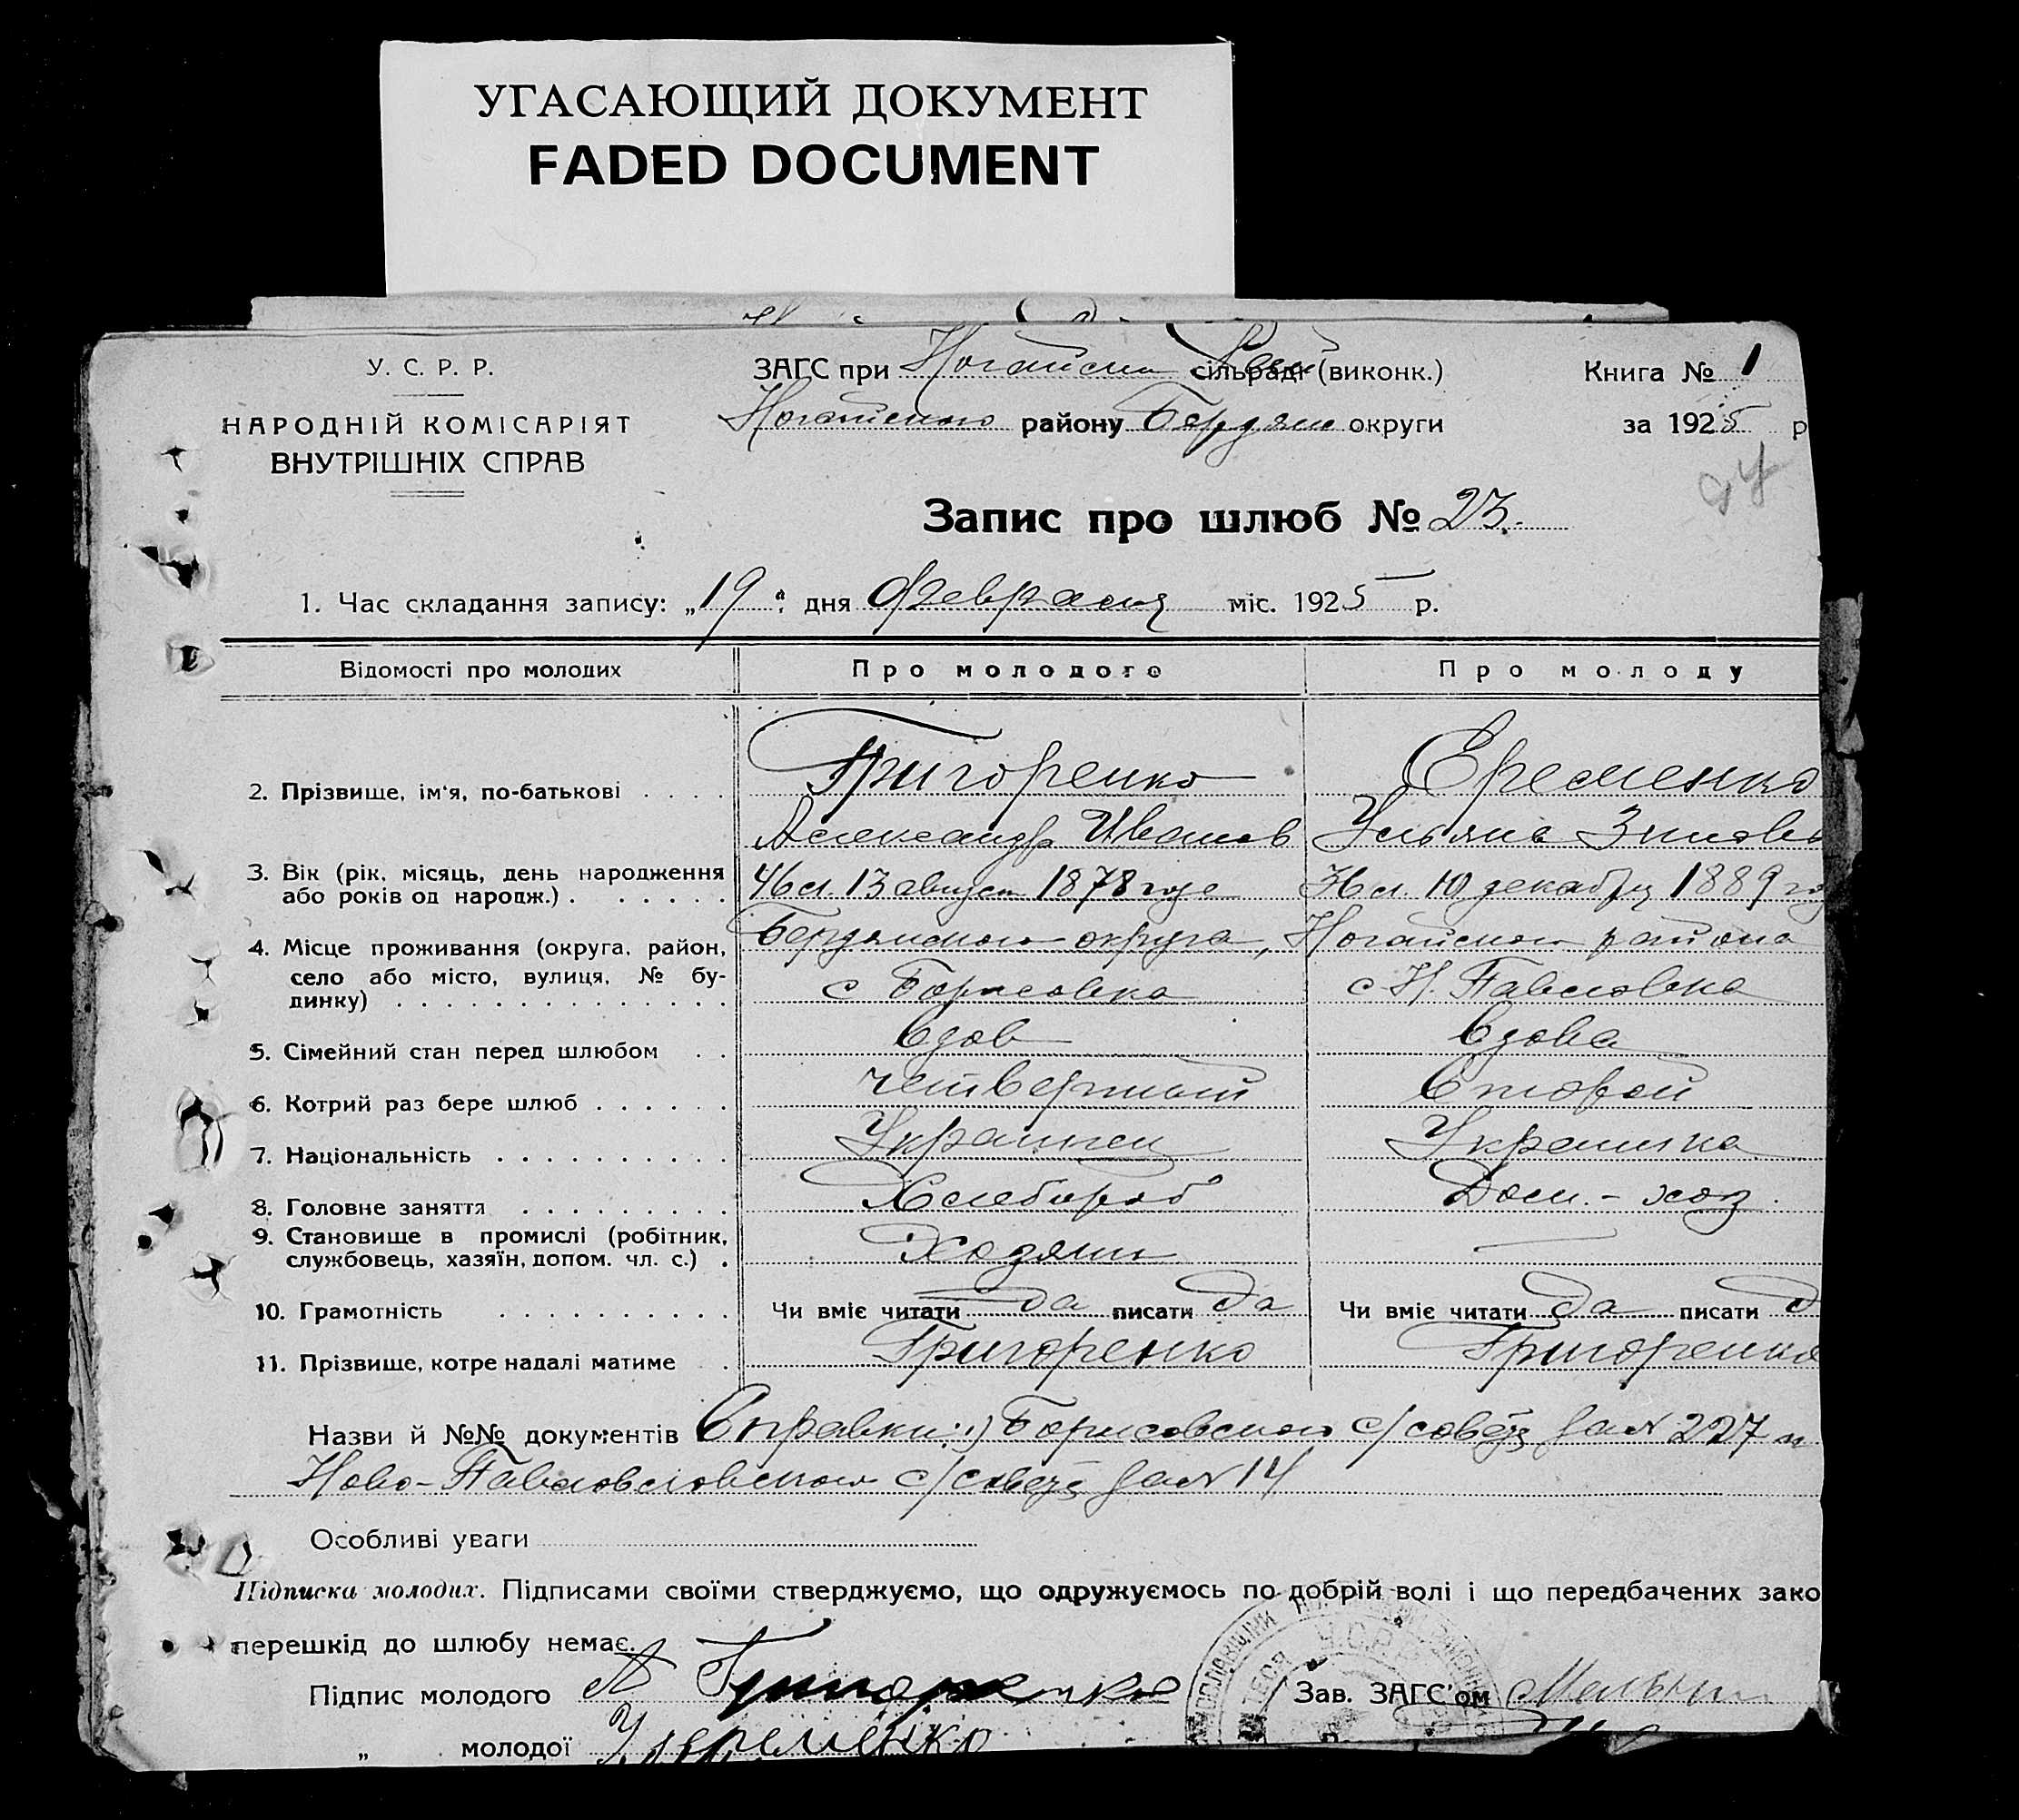 УГАСАЮЩИЙ ДОКУМЕНТ
FADED DOCUMENT
У. С. Р. Р.
НАРОДНІЙ КОМІСАРІЯТ
ВНУТРІШНІХ СПРАВ
ЗАГС при Ногайск сільраді (виконк.)
Ногайского району Бердянс округи
Книга № 1
за 1925 р
Запис про шлюб № 23.
1. Час складання запису: „19“ дня Февраля міс. 1925 р.
Відомості про молодих Про молодого Про молоду
2. Прізвище, ім'я, по-батькові . . . . Григоренко Еременко
Александр Иванов Ульяна Зиновь
3. Вік (рік, місяць, день народження
або років од народж.) . . . . . . 46 л. 13 август 1878 годе 36 л. 10 декабря 1889 го
4. Місце проживання (округа, район,
село або місто, вулиця, № бу-
динку) . . . . . . . . . . . . . .
Бердянского округа, Ногайского района
с Борисовка с Н. Павловка
5. Сімейний стан перед шлюбом . . вдов вдова
6. Котрий раз бере шлюб . . . . . . четвертый второй
7. Національність . . . . . . . . . . Украинец Украинка
8. Головне заняття . . . . . . . . . Хлебороб Дом. - хоз.
9. Становище в промислі (робітник,
службовець, хазяїн, допом. чл. с.) . Хозяин —
10. Грамотність . . . . . . . . . . Чи вміє читати да писати да Чи вміє читати да писати д
11. Прізвище, котре надалі матиме . . Григоренко Григоренко
Назви й №№ документів Справки: 1) Борисовского с/совета за № 227 и
Ново-Павловского с/совета за № 14
Особливі уваги
Підписка молодих. Підписами своїми стверджуємо, що одружуємось по добрій волі і що передбачених зако
перешкід до шлюбу немає.
Підпис молодого А Григоренко Зав. ЗАГС'ом
„ молодої У Еременко
У.С.Р.Р.